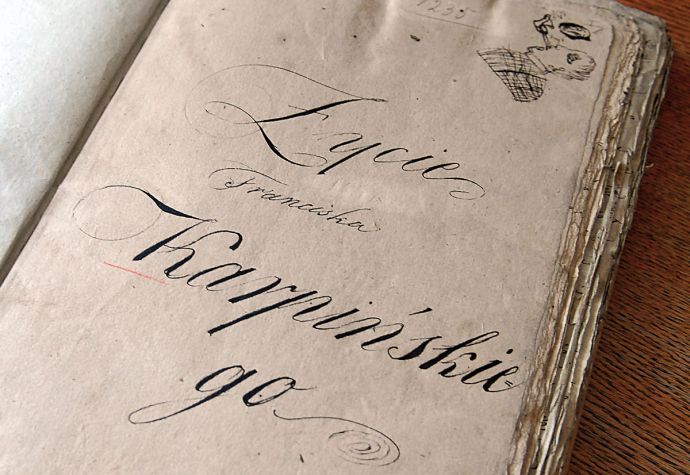 1235
Życie
Franciszka
Karpińskie-
go